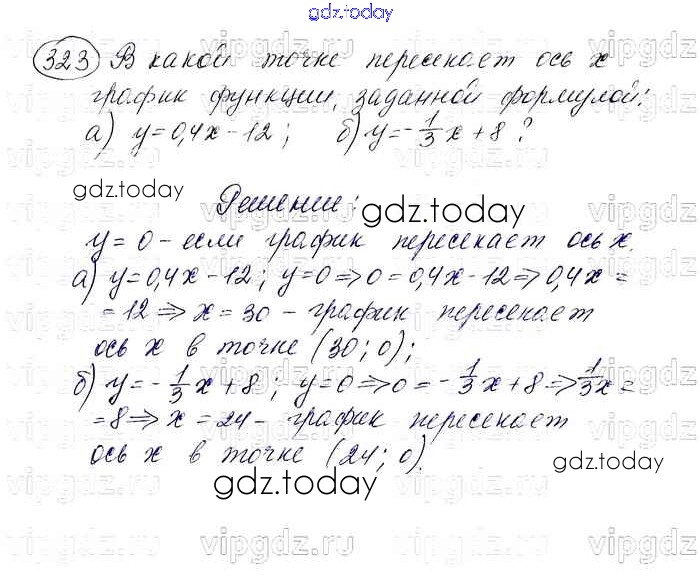 gdz.today
323 В какой точке пересекает ось x
график функции, заданной формулой:
а) y=0,4x-12; б) y=-1/3x+8?
gdz.today
Решение:
gdz.today
y=0 - если график пересекает ось x.
а) y=0,4x-12; y=0⇒0=0,4x-12⇒0,4x=
=12⇒x=30 - график пересекает
ось x в точке (30; 0);
б) y=-1/3x+8; y=0⇒0=-1/3x+8⇒1/3x=
=8⇒x=24- график пересекает
ось x в точке (24; 0).
gdz.today
gdz.today
vipgdz.ru